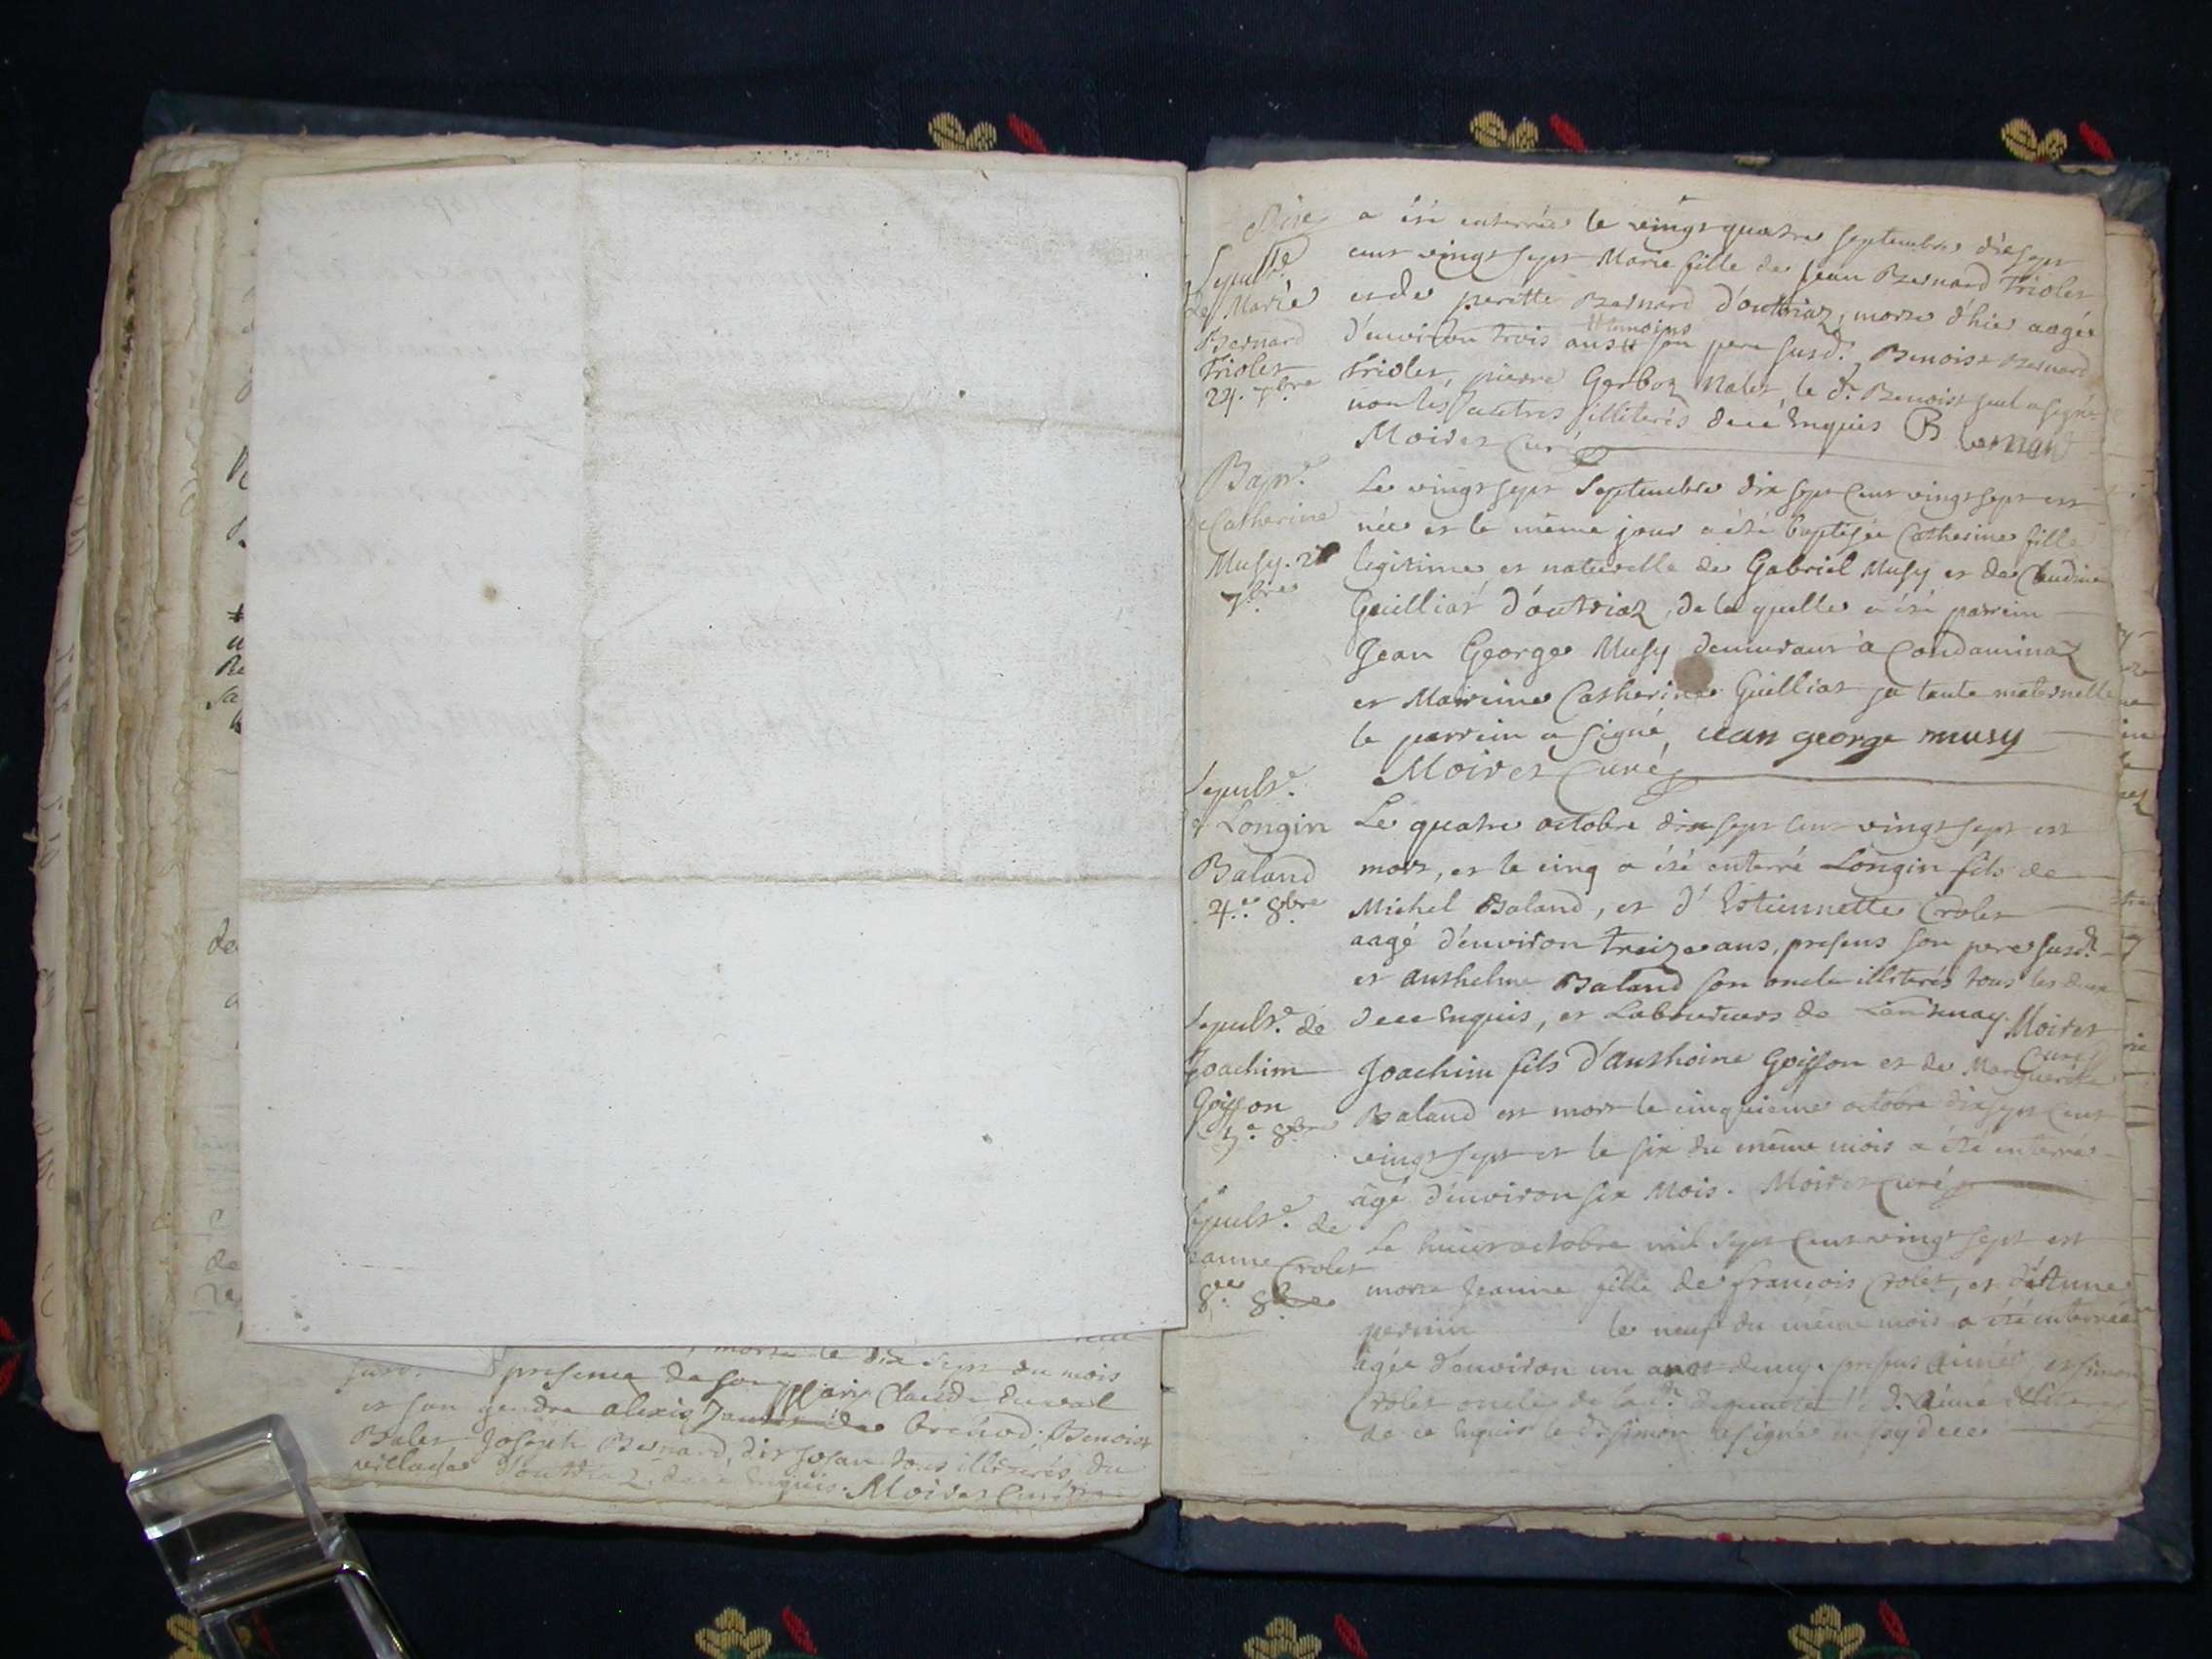 morte le dix sept du mois
presence de son Mari Claude duval
et son gendre alexis de brenod; Benoist
Balet Joseph Bernard, dit Josan tous illiterés du
village d'outriaz dece Enquis. Moiret Curé
a été enterrée le vingt quatre septembre dix sept
Sepult.e
cent vingt sept Marie fille de Jean Bernard Triolet
de Marie
et de perette Bernard d'outriaz, morte d'hier aagée
Bernard
d'environ trois ans temoins son pere susd. Benoist Bernard
Triolet
24. 7bre
Triolet, pierre Garboz Nalet, le d. Benoist seul a signé
non les autres illiterés dece Enquis B bernard
Moiret Curé
Bapt.e
Catherine
Musy. 7bre
Le vingt sept Septembre dix sept cent vingt sept est
née et le même jour a été baptisée Catherine fille
legitime et naturelle de Gabriel Musy et de Claudine
Guilliat d'outriaz, de la quelle a été parrein
Jean George Musy demeurant à Condaminaz
et Marreine Catherine Guilliat sa tante maternelle
le parrein a signé, jean george musy
Moiret Curé
Sepult.e
de Longin
Baland
4.e 8bre
Le quatre octobre dix sept cent vingt sept est
mort, et le cinq a été enterré Longin fils de
Michel Baland, et d'Estiennette Crolet
aagé d'environ treize ans, presens son pere susd.
et anthelme Baland son oncle illiterés tous les deux
dece Enquis, et Laboureurs de Lantenay. Moiret
Curé
Sepult.e de
Joachim
Goiffon
5.e 8bre
Joachim fils d'anthoine Goiffon et de Marguerite
Baland est mort le cinquieme octobre dix sept cent
vingt sept et le six du même mois a été enterré
âgé d'environ six Mois. Moiret curé
Sepult.e de
Jeanne Crolet
8.e 8bre
Le huit octobre mil sept cent vingt sept est
morte Jeanne fille de françois Crolet, et d'Anne
pernin le neuf du même mois a été enterrée
âgée d'environ un an et demy. presens aimé, et simon
Crolet oncles de la d. le d. aimé
de ce Enquis le d. simon a signé